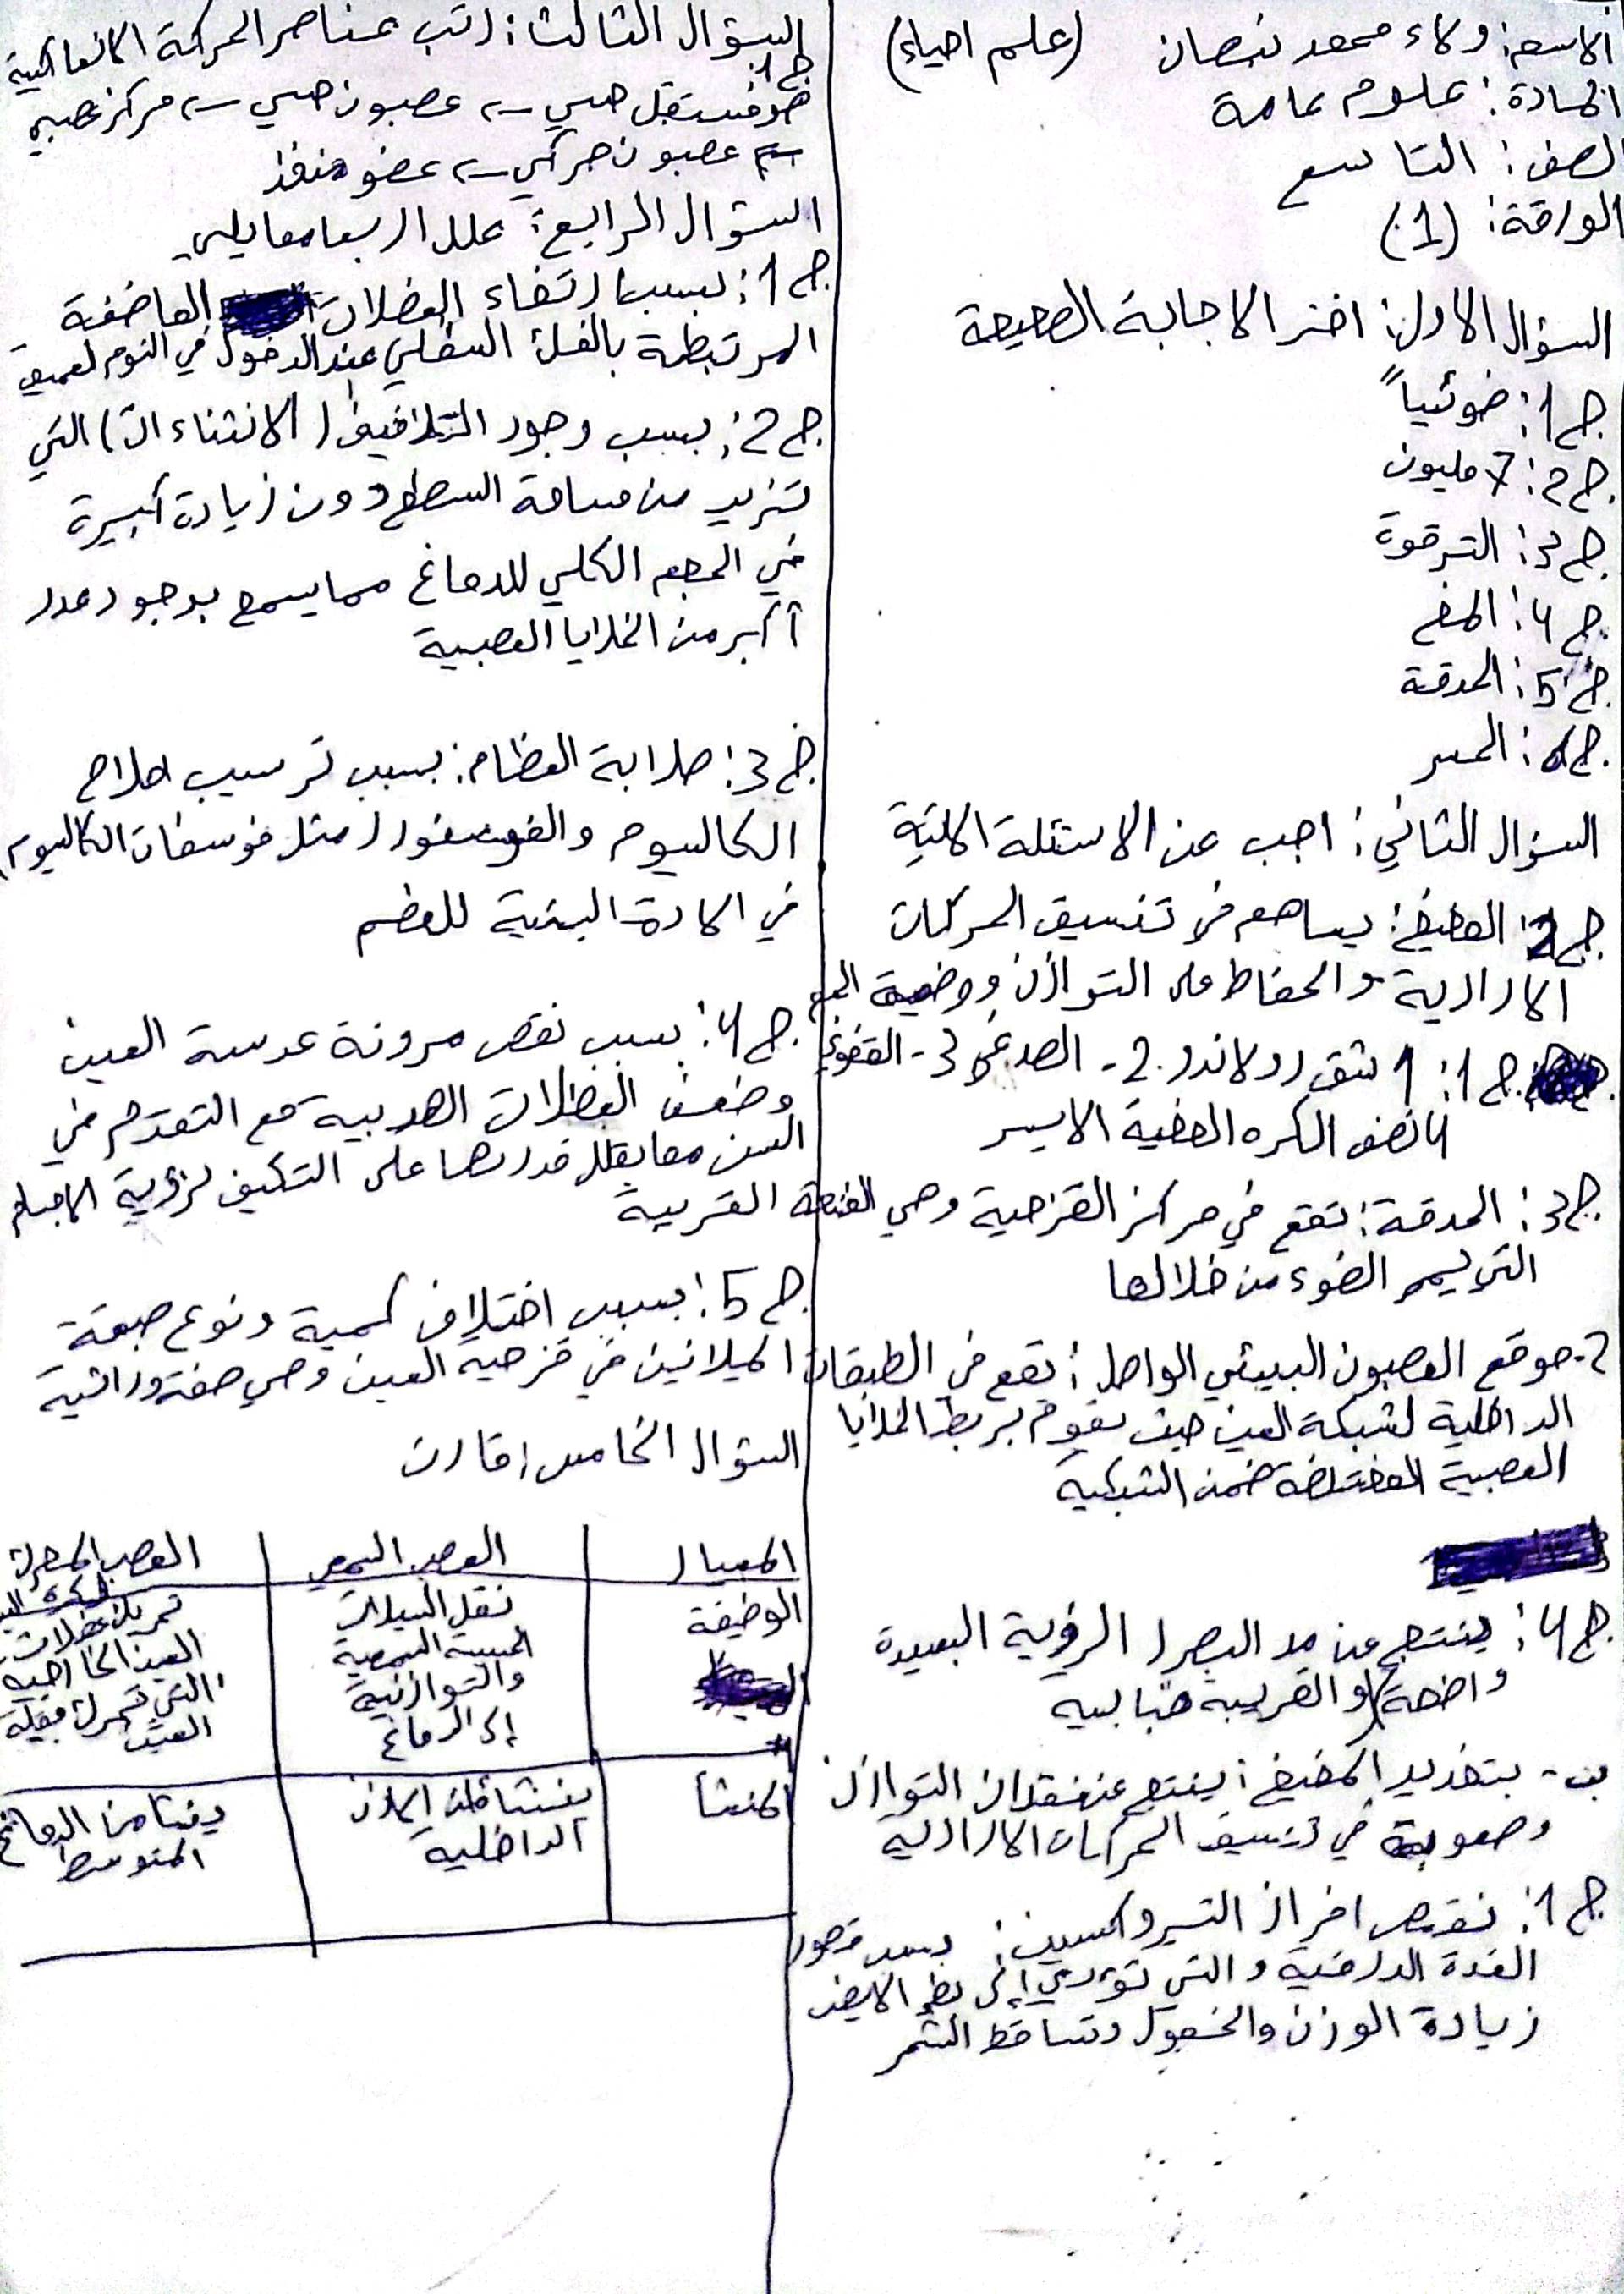 الاسم: ولاء محمد نعصان (علم احياء)
المادة: علوم عامة
الصف: التاسع
الورقة: (1)
السؤال الاول: اختر الاجابة الصحيحة
ج1: ضوئياً
ج2: 7 مليون
ج3: الترقوة
ج4: المخ
ج5: الحدقة
ج6: الحسر
السؤال الثاني: اجب عن الاسئلة الاتية
ج2: المخيخ: يساهم في تنسيق الحركات
الارادية والحفاظ على التوازن ووضعية
ج1: 1 شق رولاندو 2- الصدغي 3- القفوي
4 نصف الكره المخية الايسر
ج3: الحدقة: تقع في مركز القزحية وهي الفتحة
التي يمر الضوء من خلالها
2- موقع العصبون البيني الواصل: يقع في الطبقات
الداخلية لشبكة العين حيث يقوم بربط الخلايا
العصبية المختلفة ضمن الشبكية
ج4: ينتج عن مد البصر (الرؤية البعيدة
واضحة) والقريبة ضبابيه
ب- بتخدير المخيخ: ينتج عنه فقدان التوازن
وصعوبة في تنسيق الحركات الارادية
ج1: نقص افراز التيروكسين: يسبب قصور
الغدة الدرقية والتي تؤدي إلى بطء الايض
زيادة الوزن والخمول وتساقط الشعر
السؤال الثالث: رتب عناصر الحركة الانعكاسية
ج1
هو مستقبل حسي ← عصبون حسي ← مركز عصبي
← عصبون حركي ← عضو منفذ
السؤال الرابع: علل اربعا مما يلي
ج1: بسبب ارتخاء العضلات الماضغة
المرتبطة بالفك السفلي عند الدخول في النوم لعميق
ج2: بسبب وجود التلافيف (الانثناءات) التي
تزيد من مساحة السطح دون زيادة كبيرة
في الحجم الكلي للدماغ مما يسمح بوجود عدد
أكبر من الخلايا العصبية
ج3: صلابة العظام: بسبب ترسيب املاح
الكالسيوم والفوسفور (مثل فوسفات الكالسيوم)
في المادة البينية للعظم
ج4: بسبب نقص مرونة عدسة العين
وضعف العضلات الهدبية مع التقدم في
السن مما يقلل قدرتها على التكيف لرؤية الاجسام
القريبة
ج5: بسبب اختلاف كمية ونوع صبغة
الميلانين في قزحيه العين وهي صفة وراثية
السؤال الخامس: قارن
المعيار | العصب السمعي | العصب المحرك
الوظيفة | نقل السيالات الحسية السمعية والتوازنية إلى الدماغ | تحريك عضلات العين الخارجية التي تحرك مقلة العين
المنشأ | ينشأ من الاذن الداخلية | ينشأ من الدماغ المتوسط